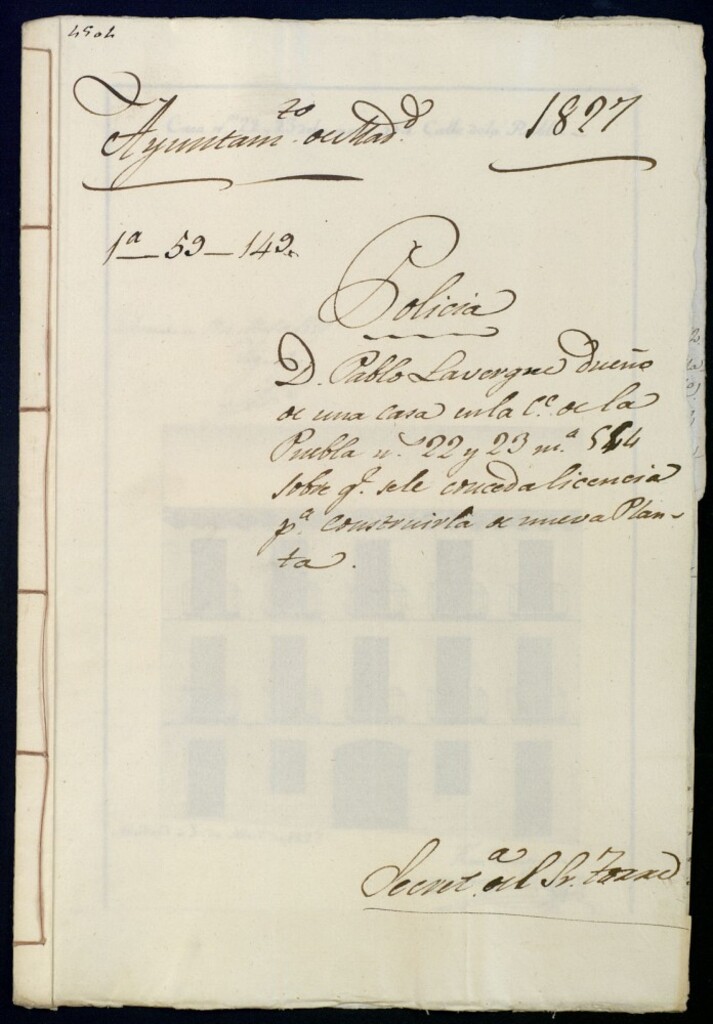 4054
Ayuntam.to de Mad.d 1827
1a_59_149.
Policia
D. Pablo Lavergne dueño
de una casa en la C.e de la
Puebla n.s 22 y 23 m.a 544
sobre q.e se le conceda licencia
p.a construirla de nueva Plan-
ta.
Secret.a del Sr.